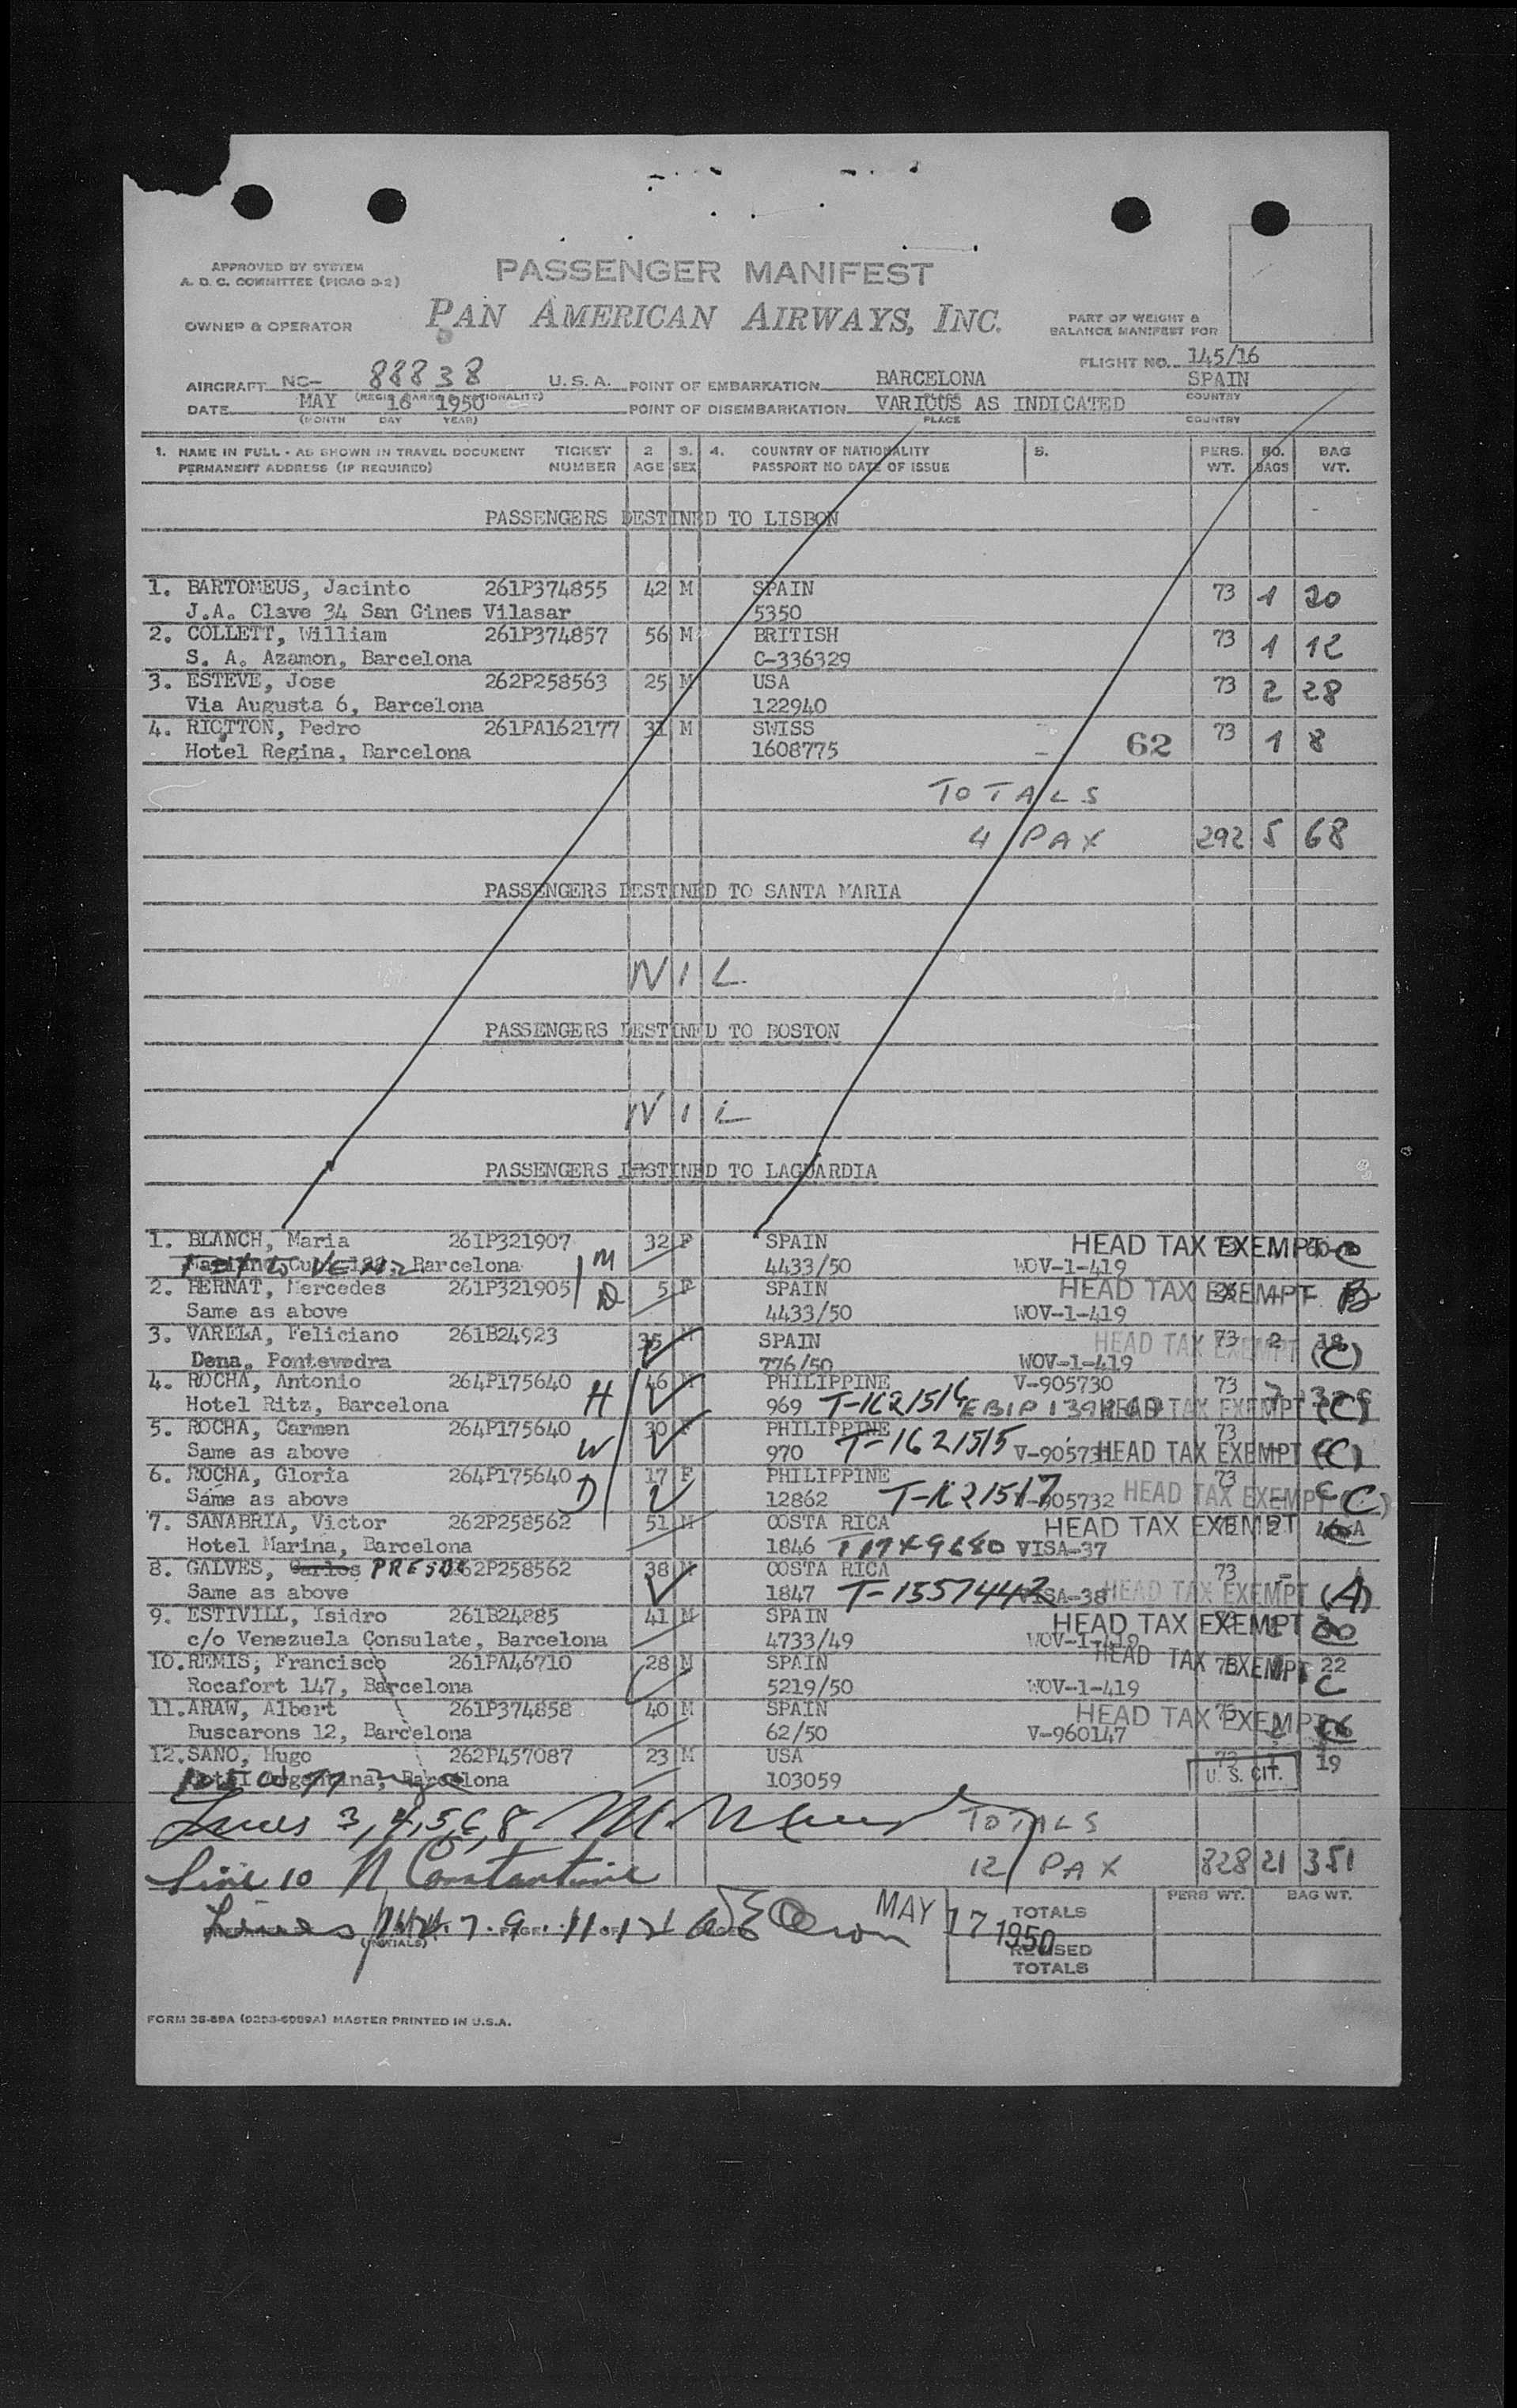 APPROVED BY SYSTEM
A. D. C. COMMITTEE (PICAO 3-2)
PASSENGER MANIFEST
OWNER & OPERATOR
PAN AMERICAN AIRWAYS, INC.
PART OF WEIGHT &
BALANCE MANIFEST FOR
FLIGHT NO. 145/16
AIRCRAFT NC- 88838 U.S.A. POINT OF EMBARKATION BARCELONA SPAIN
(REGIS MARKS NATIONALITY) PLACE COUNTRY
DATE MAY 16 1950 POINT OF DISEMBARKATION VARIOUS AS INDICATED
(MONTH DAY YEAR) PLACE COUNTRY
1. NAME IN FULL - AS SHOWN IN TRAVEL DOCUMENT TICKET 2 3. 4. COUNTRY OF NATIONALITY 5. PERS. NO. BAG
PERMANENT ADDRESS (IF REQUIRED) NUMBER AGE SEX PASSPORT NO DATE OF ISSUE WT. BAGS WT.
PASSENGERS DESTINED TO LISBON
1. BARTOMEUS, Jacinto 261P374855 42 M SPAIN 73 1 20
J.A. Clave 34 San Gines Vilasar 5350
2. COLLETT, William 261P374857 56 M BRITISH 73 1 12
S. A. Azamon, Barcelona C-336329
3. ESTEVE, Jose 262P258563 25 M USA 73 2 28
Via Augusta 6, Barcelona 122940
4. RIOTTON, Pedro 261PA162177 31 M SWISS 73 1 8
Hotel Regina, Barcelona 1608775 62
TOTALS
4 PAX 292 5 68
PASSENGERS DESTINED TO SANTA MARIA
NIL
PASSENGERS DESTINED TO BOSTON
NIL
PASSENGERS DESTINED TO LAGUARDIA
1. BLANCH, Maria 261P321907 32 F SPAIN HEAD TAX EXEMPT
Barcelona M 4433/50 WOV-1-419
2. BERNAT, Mercedes 261P321905 D 5 F SPAIN HEAD TAX EXEMPT B
Same as above 4433/50 WOV-1-419
3. VARELA, Feliciano 261B24923 35 M SPAIN HEAD TAX EXEMPT 73 2 18
Dena, Pontevedra 776/50 WOV-1-419 (C)
4. ROCHA, Antonio 264P175640 H 46 M PHILIPPINE V-905730 73
Hotel Ritz, Barcelona 969 T-1621516 HEAD TAX EXEMPT (C)
5. ROCHA, Carmen 264P175640 W 30 F PHILIPPINE 73
Same as above 970 T-1621515 V-905731 HEAD TAX EXEMPT (C)
6. ROCHA, Gloria 264P175640 D 17 F PHILIPPINE 73
Same as above 12862 T-1621517 V-905732 HEAD TAX EXEMPT (C)
7. SANABRIA, Victor 262P258562 51 M COSTA RICA HEAD TAX EXEMPT
Hotel Marina, Barcelona 1846 VISA-37
8. GALVES, Carlos 262P258562 38 M COSTA RICA 73
Same as above 1847 T-1557442 VISA-38 HEAD TAX EXEMPT (A)
9. ESTIVILL, Isidro 261B24885 41 M SPAIN HEAD TAX EXEMPT
c/o Venezuela Consulate, Barcelona 4733/49 WOV-1-419
10. REMIS, Francisco 261PA46710 28 M SPAIN HEAD TAX EXEMPT 22
Rocafort 147, Barcelona 5219/50 WOV-1-419 C
11. ARAW, Albert 261P374858 40 M SPAIN HEAD TAX EXEMPT
Buscarons 12, Barcelona 62/50 V-960147
12. SANO, Hugo 262P457087 23 M USA 73 19
Hotel Argentina, Barcelona 103059 U. S. CIT.
Lines 3,4,5,6,8 TOTALS
Line 10 N Constantine 12 PAX 828 21 351
PERS WT. BAG WT.
Lines 1, 2, 7, 9, 11, 12 MAY 17 1950 TOTALS
(INITIALS) REVISED
TOTALS
FORM 38-89A (0293-6989A) MASTER PRINTED IN U.S.A.